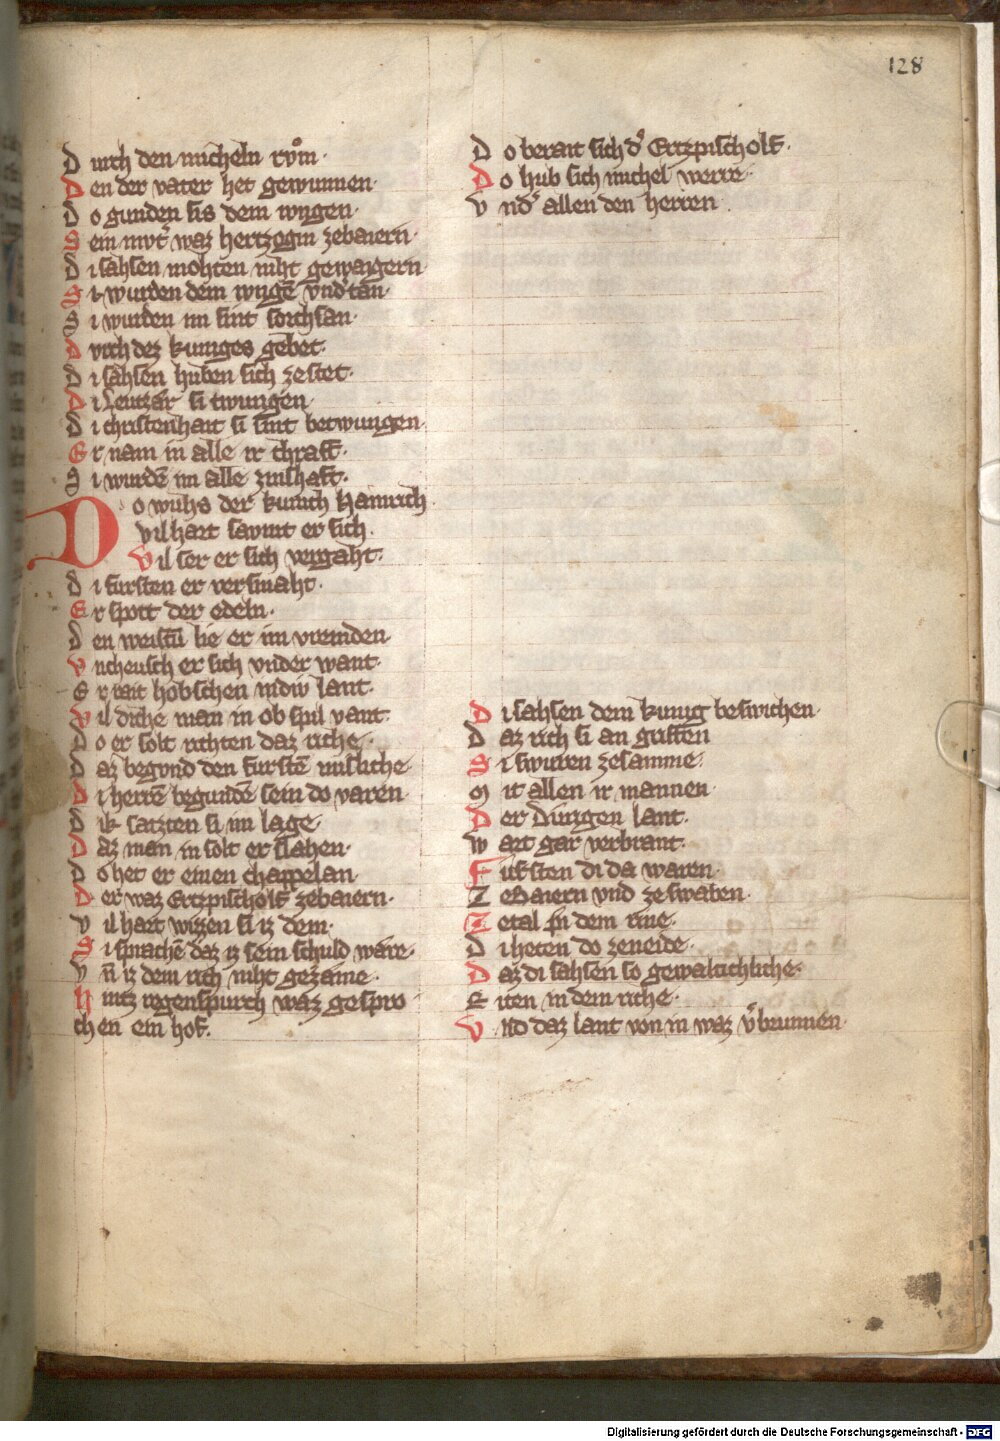 128
Durch den micheln rvͦm·
Den der vater het gewunnen·
Do gunden sis dem ivngen·
Sein mvtͬ waz hertzogin zebaiern·
Di sahsen mohten niht gewaigern
Si wurden dem ivngē vnd tan·
Si wurden im sint sorchsan·
Dvrch dez kuniges gebet·
Di sahsen huben sich ze stet·
Di Leutzar si twungen
Di christenhait si sint betwungen·
Er nam in alle ir chraft·
Si wurdē im alle zinshaft·
Do wuhs der kunich Hainrich
vil hart savmt er sich·
Vil ser er sich vergaht·
Di fursten er versmaht·
Er spott der edeln·
Den weistū lie er im vremden·
Vncheusch er sich vnder want·
Er rait hobschen indiv lant·
Vil diche man in ob spil vant·
Do er solt richten daz riche·
Daz begvnd den furstē misliche·
Di herrē begundē sein do varen·
Dik satzten si im lage·
Daz man in solt er slahen·
Do het er einen chappelan·
Der waz Ertzpischolf zebaiern·
Vil hart wizzen si iz dem·
Si sprachē daz iz sein schuld wäre·
Vn̄ iz dem rich niht gezäme·
Hintz regenspurch waz gespro
chen ein hof·
Do berait sich dͬ Ertzpischolf·
Do hub sich michel werre·
Vndͬ allen den herren
Di sahsen dem kunig beswichen·
Daz rich si an griffen
Si swuren zesamme·
Mit allen ir mannen·
Der Duringen lant·
Wart gar verbrant·
Fursten di da waren·
Ze Baiern vnd ze swaben·
Ze tal pi dem rine·
Di heten do ze neide·
Daz di sahsen so gewaltichliche·
Riten in dem riche·
Vnd daz lant von in waz vͬbrunnen·
Digitalisierung gefördert durch die Deutsche Forschungsgemeinschaft - DFG